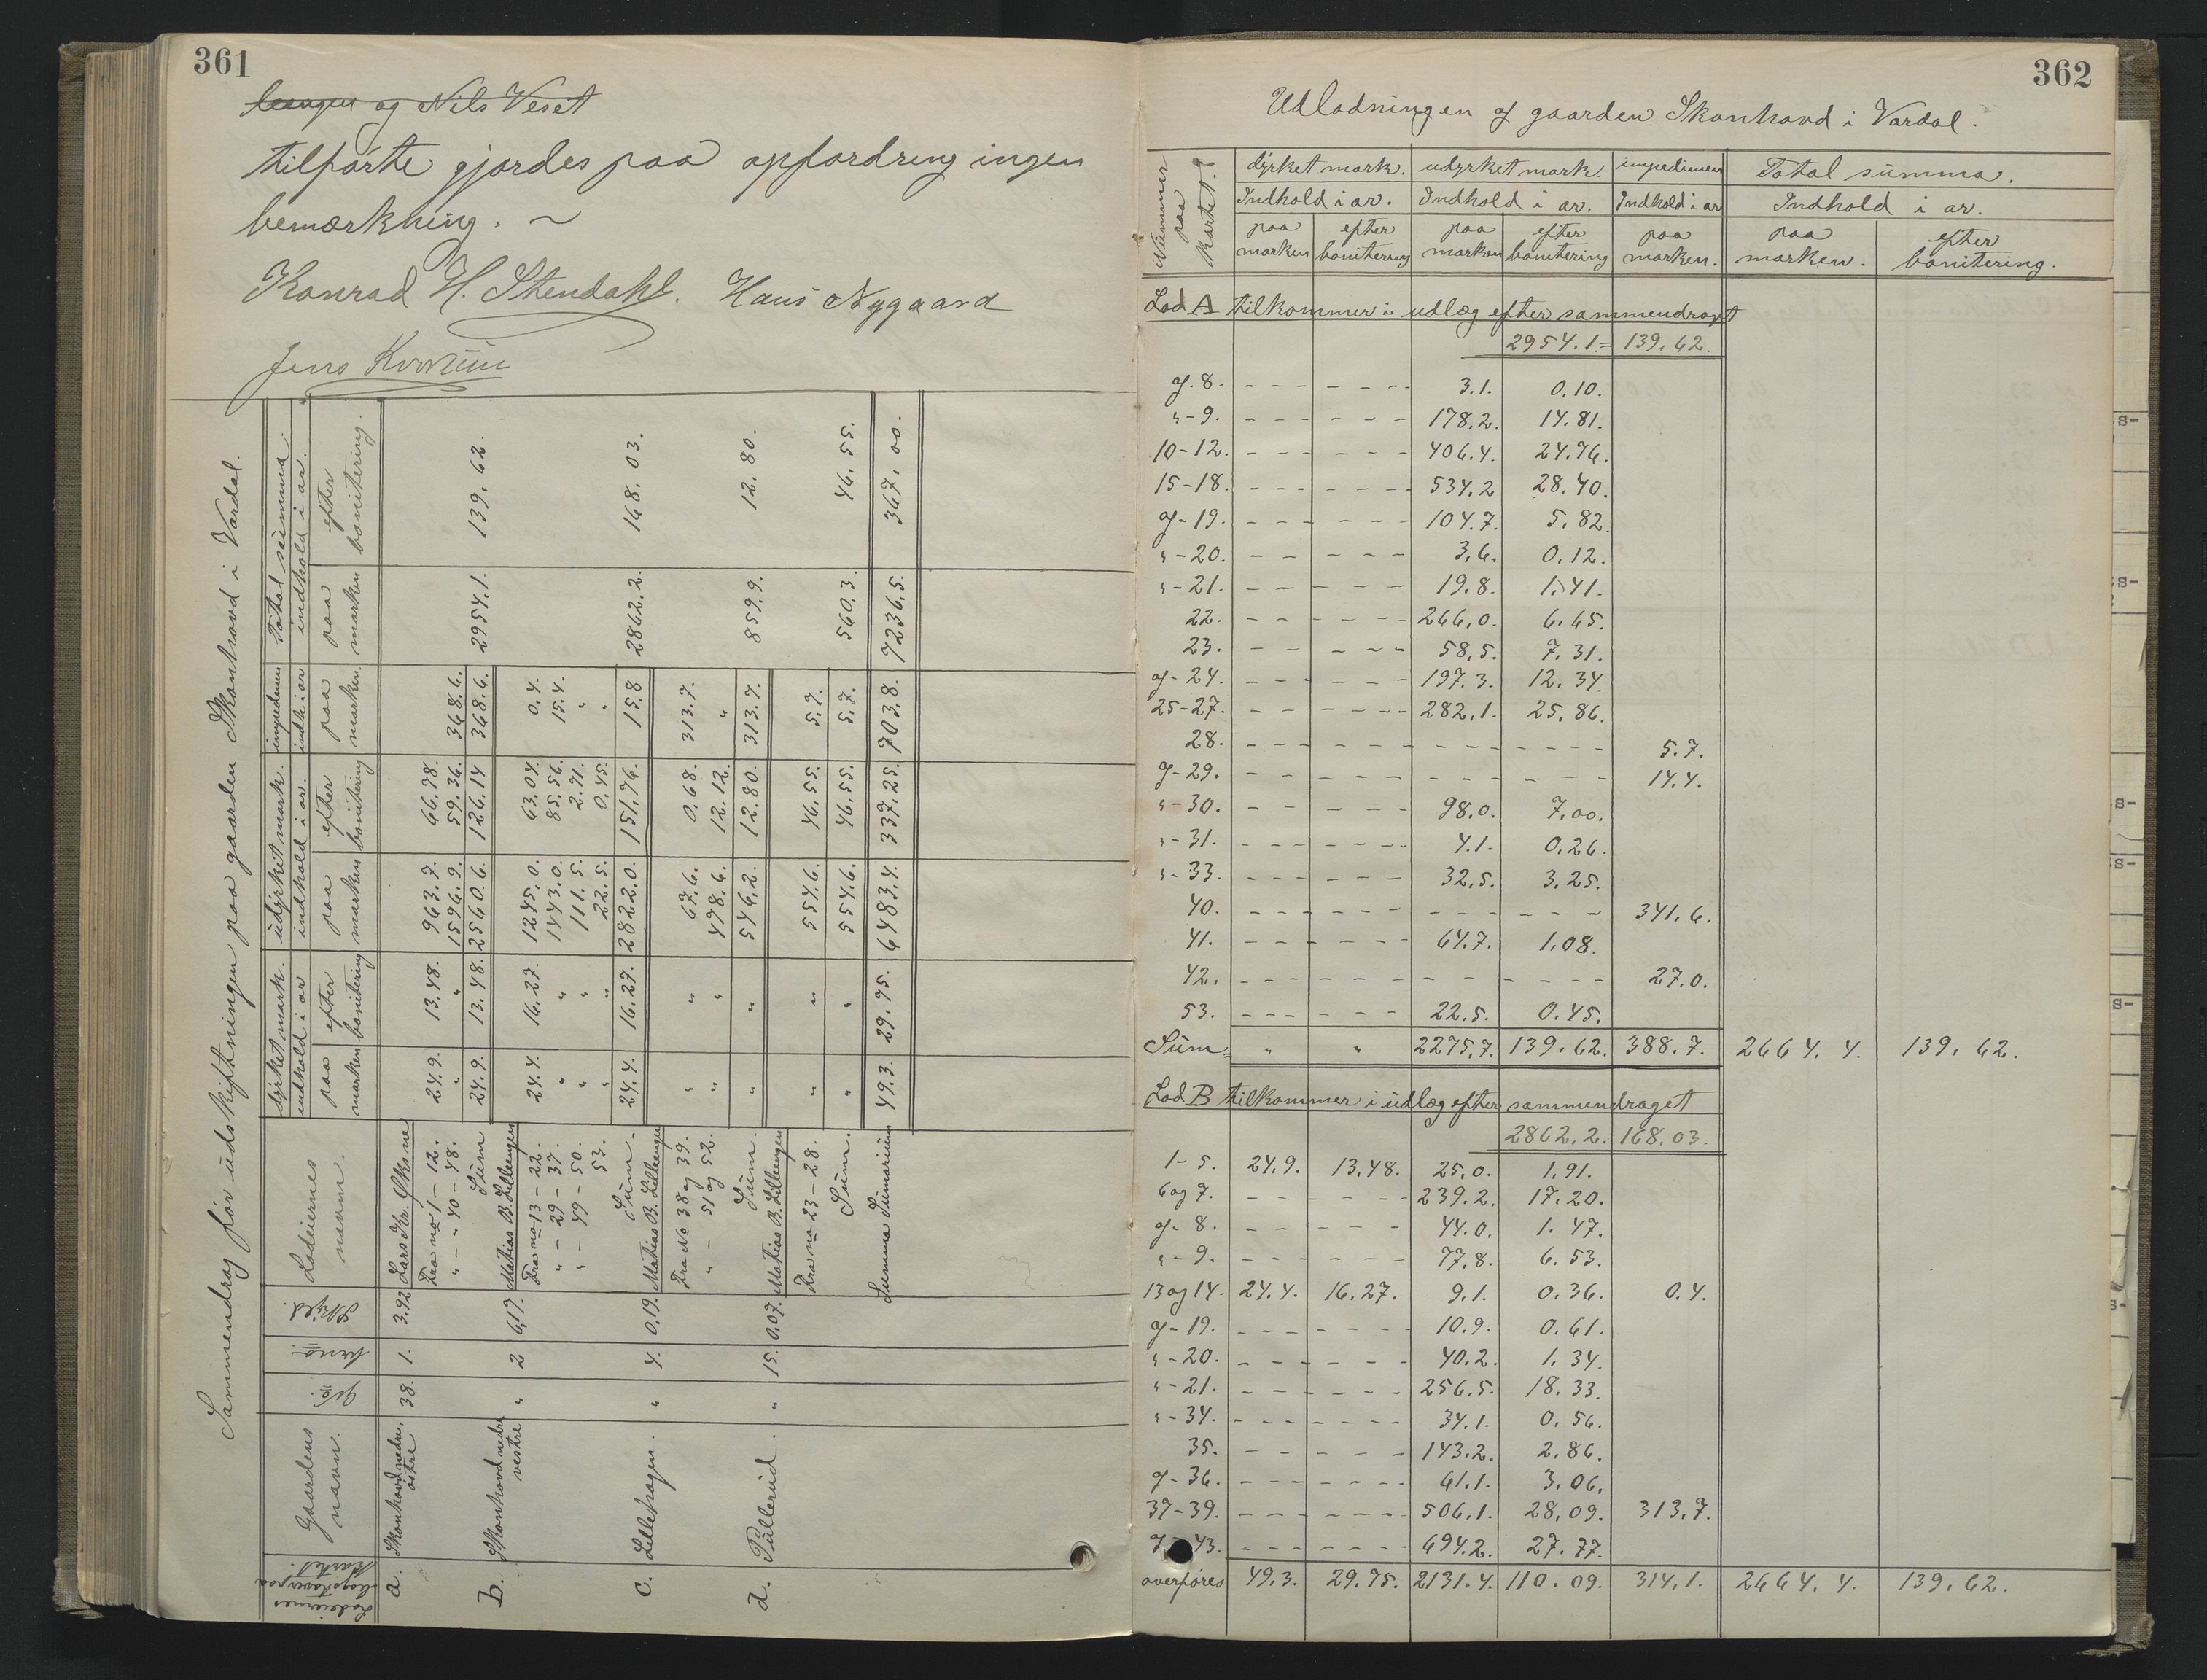 361
og Nils Veset
tilførte gjordes paa opfordring ingen
bemærkning. ~
Konrad H. Stendahl. Hans Nygaard
Jens Kvorum
Sammendrag før udskiftningen paa gaarden Skonhovd i Vardal.
Lodeiernes bogstaver paa kartet. Gaardens navn. Gno. Brno. Skyld. Lodeiernes navn. dyrket mark. indhold i ar udyrket mark. indhold i ar. impedimen indh. i ar Total summa. indhold i ar.
paa marken efter bonitering paa marken efter bonitering paa marken. paa marken efter bonitering.
a. Skonhovd nedre, østre 38. 1. 3.92 Lars Kr. Øksne
Fra no 1 - 12. 24.9. 13.48. 963.7. 66.78.
" - " 40 - 48. " " 1596.9. 59.36. 368.6.
Sum 24.9. 13.48. 2560.6. 126.14 368.6. 2954.1. 139.62.
b. Skonhovd nedre vestre " 2 6,17. Matias B. Lilleengen
Fra no 13 - 22. 24.4. 16.27. 1245.0. 63.04. 0.4.
" - 29 - 37. " " 1443.0. 85.56. 15.4.
" - 49 - 50. " " 111.5. 2.71. "
53. " " 22.5. 0.45. "
Sum. 24.4. 16.27. 2822.0. 151.76. 15.8 2862.2. 168.03.
c. Lillehagen. " 4. 0.19. Matias B. Lilleengen
Fra No 38 og 39. " " 67.6. 0.68. 313.7.
" - 51 og 52. " " 478.6. 12.12. "
Sum. " " 546.2. 12.80. 313.7. 859.9. 12.80.
d. Pullerud. " 15. 0.07. Matias B. Lilleengen
Fra no 23 - 28. " " 554.6. 46.55. 5.7.
Sum. " " 554.6. 46.55. 5.7. 560.3. 46.55.
Summa Sumarum 49.3. 29.75. 6483.4. 337.25. 703.8. 7236.5. 367.00.
362
Udlodningen af gaarden Skonhovd i Vardal.
Nummer paa kartet. dyrket mark. udyrket mark. impedimen Total summa.
Indhold i ar. Indhold i ar. Indhold i ar Indhold i ar.
paa marken efter bonitering paa marken efter bonitering paa marken. paa marken. efter bonitering.
Lod A tilkommer i udlæg efter sammendraget
2954.1.= 139.62.
af. 8. - - - - - - 3.1. 0.10.
" - 9. - - - - - - 178.2. 14.81.
10-12. - - - - - - 406.4. 24.76.
15-18. - - - - - - 534.2 28.40.
af - 19. - - - - - - 104.7. 5.82.
" - 20. - - - - - 3.6. 0.12.
" - 21. - - - - - 19.8. 1.41.
22. - - - - - - 266.0. 6.65.
23. - - - - - 58.5. 7.31.
af - 24. - - - - - 197.3. 12.34.
25-27. - - - - - - 282.1. 25.86.
28. - - - - - - - - - - - 5.7.
af - 29. - - - - - - - - - 14.4.
" - 30. - - - - - 98.0. 7.00.
" - 31. - - - - - - 4.1. 0.26.
" - 33. - - - - - - 32.5. 3.25.
40. - - - - - - - - - - - 341.6.
41. - - - - - - 64.7. 1.08.
42. - - - - - - - - - - - 27.0.
53. - - - - - - 22.5. 0.45.
Sum= " " 2275.7. 139.62. 388.7. 2664.4. 139.62.
Lod B tilkommer i udlæg efter sammendraget
2862.2. 168.03.
1-5. 24.9. 13.48. 25.0. 1.91.
6 og 7. - - - - - - 239.2. 17.20.
af - 8. - - - - - - 44.0. 1.47.
" - 9. - - - - - - 77.8. 6.53.
13 og 14. 24.4. 16.27. 9.1. 0.36. 0.4.
af - 19. - - - - - - 10.9. 0.61.
" - 20. - - - - - - 40.2. 1.34.
" - 21. - - - - - - 256.5. 18.33.
" - 34. - - - - - - - 34.1. 0.56.
35. - - - - - 143.2. 2.86.
af - 36. - - - - - - 61.1. 3.06.
37-39. - - - - - - - 506.1. 28.09. 313.7.
43. - - - - - - - 694.2. 27.77.
overføres 49.3. 29.75. 2131.4. 110.09. 314.1. 2664.4. 139.62.